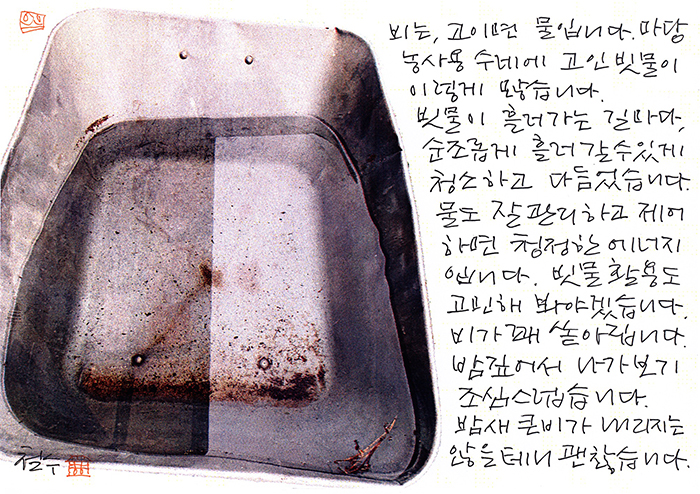 비는, 고이면 물입니다. 마당
농사용 수레에 고인 빗물이
이렇게 많습니다.
빗물이 흘러가는 길마다,
순조롭게 흘러갈수있게
청소하고 다듬었습니다.
물도 잘 관리하고 제어
하면 청정한 에너지
입니다. 빗물 활용도
고민해 봐야겠습니다.
비가 꽤 쏟아집니다.
밤 깊어서 나가보기
조심스럽습니다.
밤새 큰비가 내리지는
않을테니 괜찮습니다.
철수